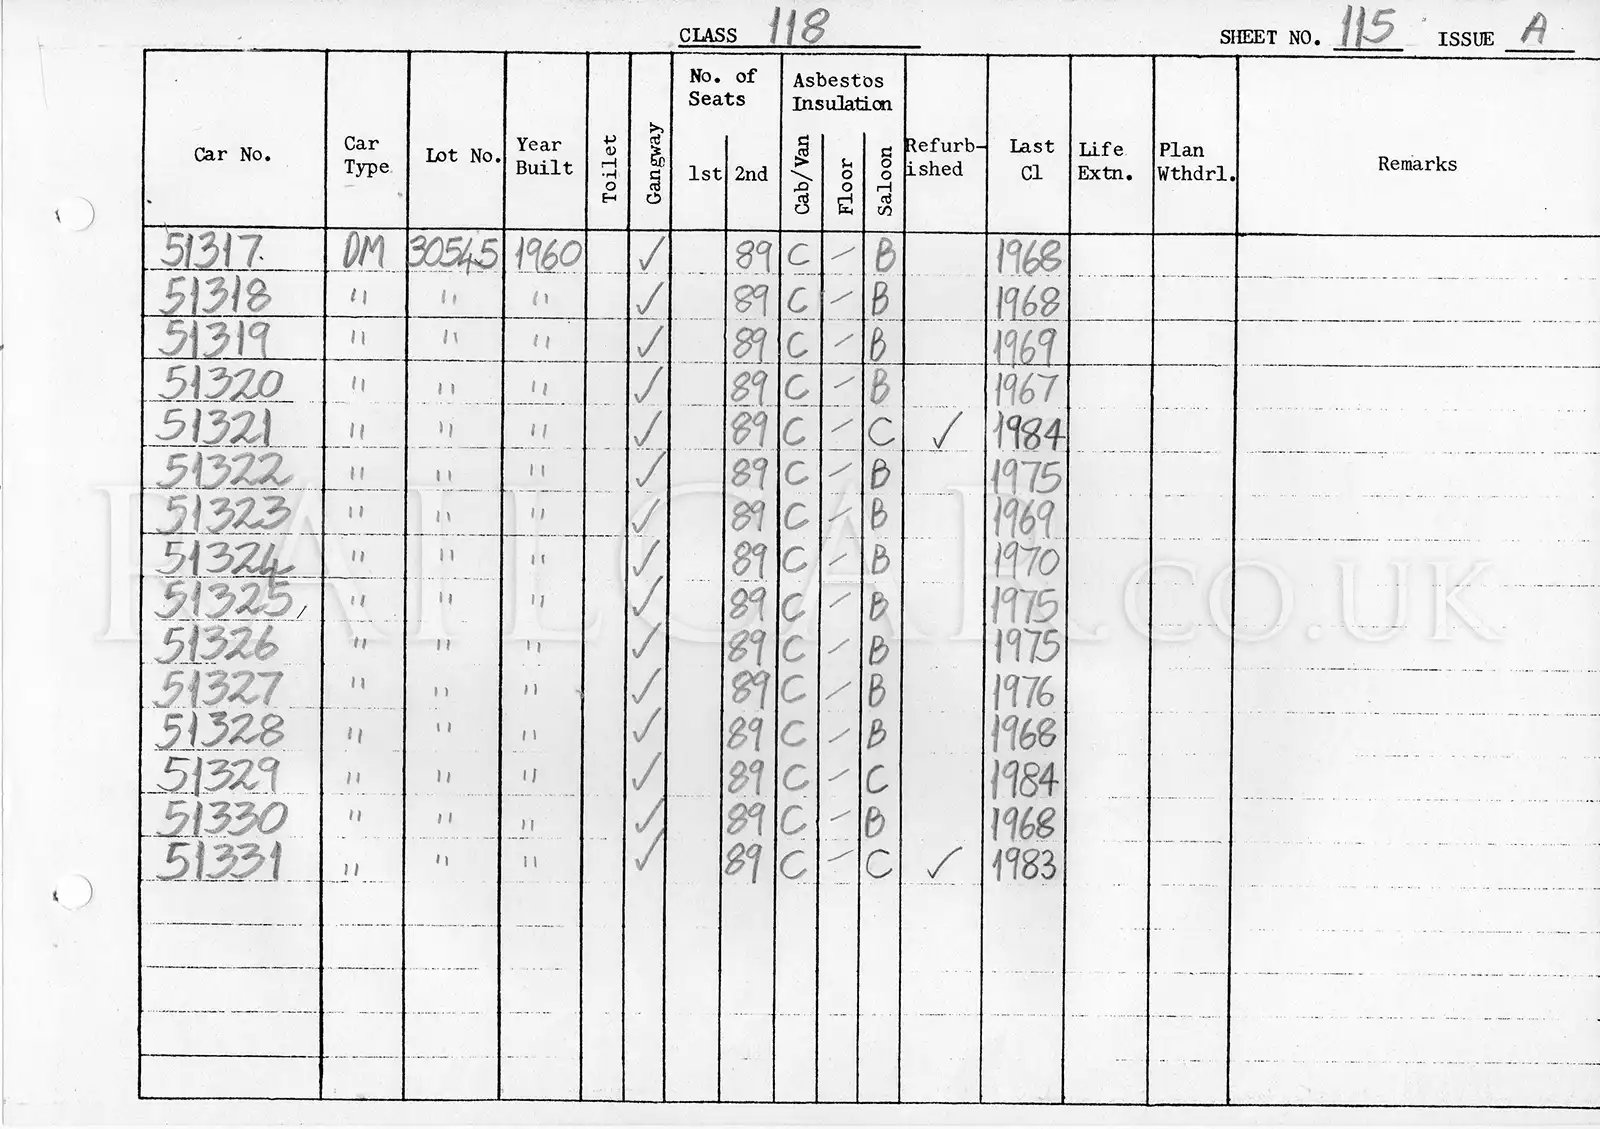 CLASS 118 SHEET NO. 115 ISSUE A
Car No. Car Type Lot No. Year Built Toilet Gangway No. of Seats 1st 2nd Asbestos Insulation Cab/Van Floor Saloon Refurb-ished Last Cl Life Extn. Plan Wthdrl. Remarks
51317. DM 30545 1960 ✓ 89 C – B 1968
51318 " " " ✓ 89 C – B 1968
51319 " " " ✓ 89 C – B 1969
51320 " " " ✓ 89 C – B 1967
51321 " " " ✓ 89 C – C ✓ 1984
51322 " " " ✓ 89 C – B 1975
51323 " " " ✓ 89 C – B 1969
51324 " " " ✓ 89 C – B 1970
51325, " " " ✓ 89 C – B 1975
51326 " " " ✓ 89 C – B 1975
51327 " " " ✓ 89 C – B 1976
51328 " " " ✓ 89 C – B 1968
51329 " " " ✓ 89 C – C 1984
51330 " " " ✓ 89 C – B 1968
51331 " " " ✓ 89 C – C ✓ 1983
RAILCAR.CO.UK